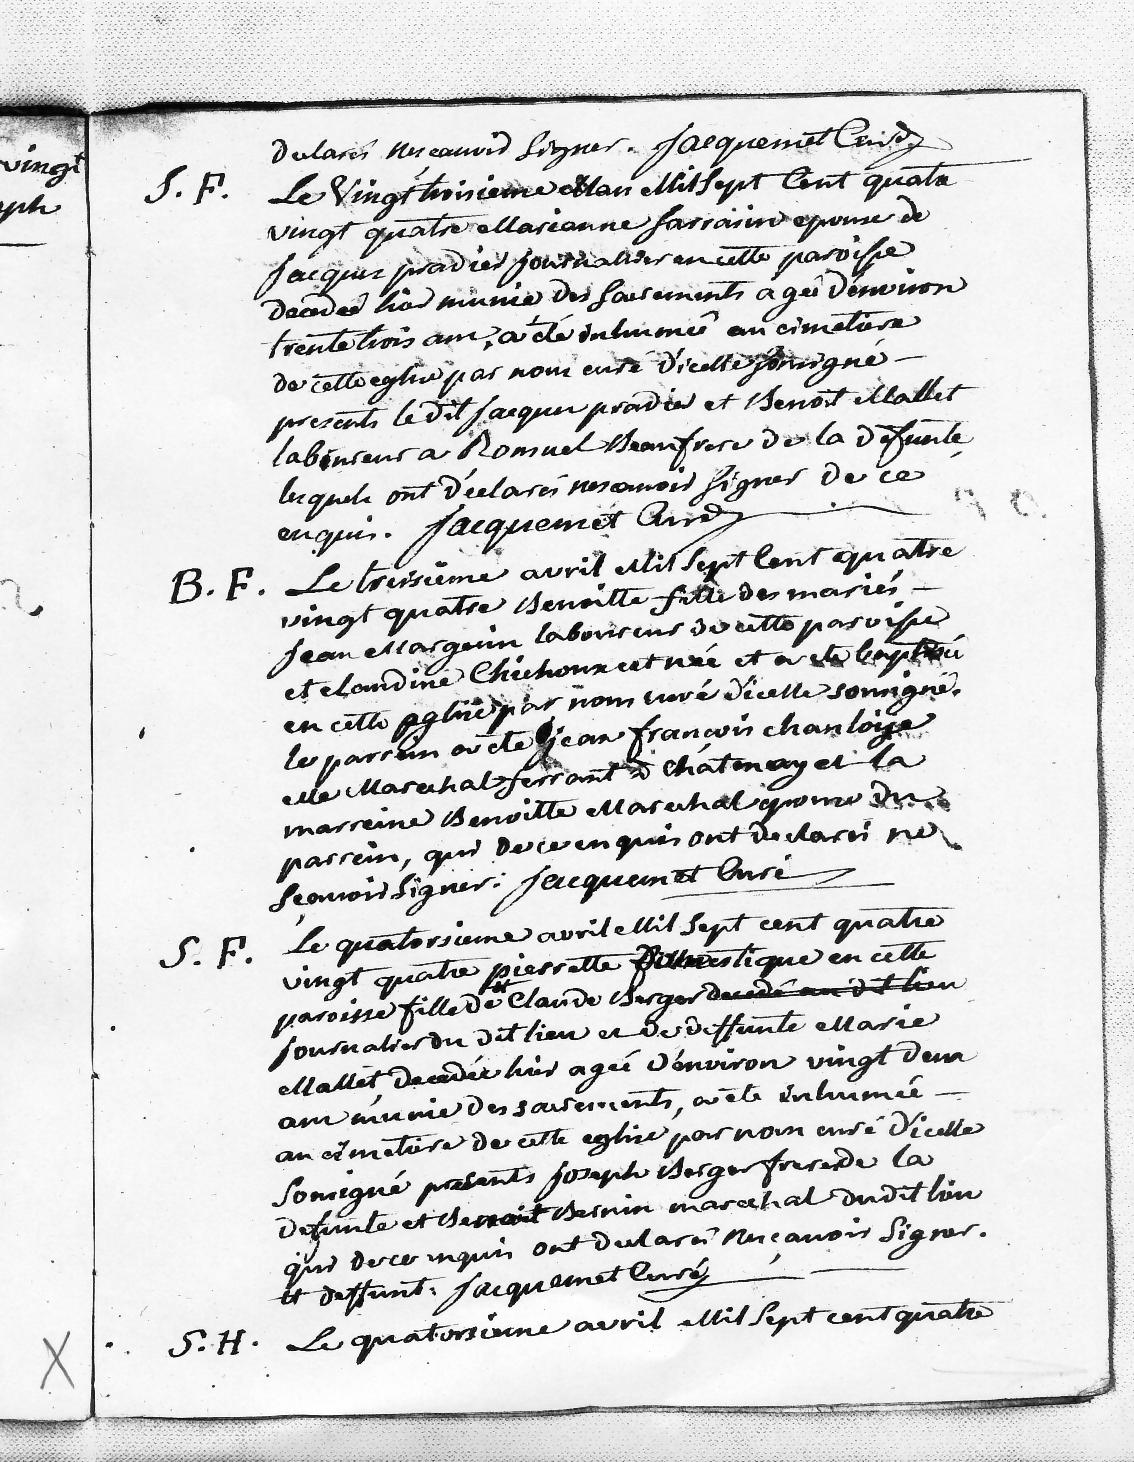 vingt
eph
declaré ne scavoir signer. Jacquemet Curé
S. F. Le Vingt troisieme Mars Mil Sept Cent quatre
vingt quatre Marianne Sarrasin epouse de
Jacques pradier journalier en cette paroisse
decedeé hier munie des Sacrements ageé d'environ
trente trois ans, a été inhumeé au cimetiere
de cette eglise par nous curé d'icelle Sousigné
presents le dit Jacques pradier et Benoit Mallet
laboureur a Romuel Beaufrere de la defunte,
lesquels ont déclarés ne scavoir signer de ce
enquis. Jacquemet Curé
B. F. Le treisieme avril Mil Sept Cent quatre
vingt quatre Benoitte fille des mariés
Jean Margouin laboureur de cette paroisse
et claudine Chichoux est née et a ete baptisé
en cette eglise par nous curé d'icelle sousigné.
le parrein a été jean françois chanloije
Me Marechal ferrant à Châtenay et la
marreine Benoitte Marechal epouse du
parrein, qui de ce enquis ont declarés ne
sçavoir signer. Jacquemet Curé
S. F. Le quatorsieme avril Mil Sept cent quatre
vingt quatre pierrette domestique en cette
paroisse fille de Claude Berger decedé au dit lieu
journalier du dit lieu et de deffunte Marie
Mallet decedée hier ageé d'environ vingt deux
ans munie des sacrements, a ete inhumée
au cimetiere de cette eglise par nous curé d'icelle
Sousigné presents Joseph Berger frere de la
defunte et Benoit Bernin marechal du dit lieu
qui de ce enquis ont declarés ne sçavoir Signer.
tt deffunt. Jacquemet Curé
S. H. Le quatorsieme avril Mil Sept cent quatre
X